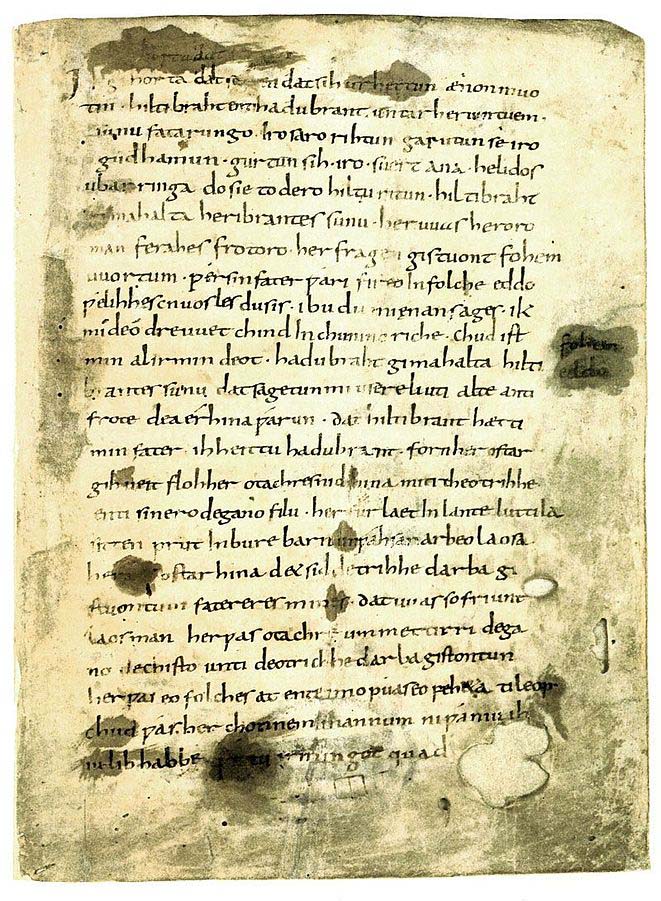 horta dat dat sih urhettun ænon muo
tin · hiltibraht enti hadubrant · untar heriun tuem ·
sunu fatarungo · iro saro rihtun garutun se iro
gudhamun · gurtun sih · iro · suert ana · helidos
ubar ringa do sie to dero hiltu ritun · hiltibraht
gimahalta heribrantes sunu · her uuas heroro
man ferahes frotoro · her fragen gistuont fohem
uuortum · ƿer sin fater ƿari fireo In folche eddo
ƿelihhes cnuosles du sis · ibu du mi enan sages · ik
mi de odre uuet chind In chunincriche · chud ist
min al irmin deot · hadubraht gimahalta hilti
brantes sunu dat sagetun mi usere liuti alte anti
frote dea érhina ƿarun · dat hiltibrant hætti
min fater · ih heittu hadubrant · forn her ostar
gihueit floh her otachres nid hina miti theotrihhe
enti sinero degano filu · her furlaet In lante luttila
sitten prut In bure barn unƿahsan arbeo laosa
ostar hina d& sid detrihhe darba gi
stuontum fateres mines · dat uuas so friunt
laos man her ƿas otachre ummet tirri dega
no dechisto unti deotrichhe darba gistontun
her ƿas eo folches at ente imo ƿuas eo feh&a ti leop
chud ƿas her chonnem mannum ni ƿaniu ih
iu lib habbe irmingot quad
fohem
eddo